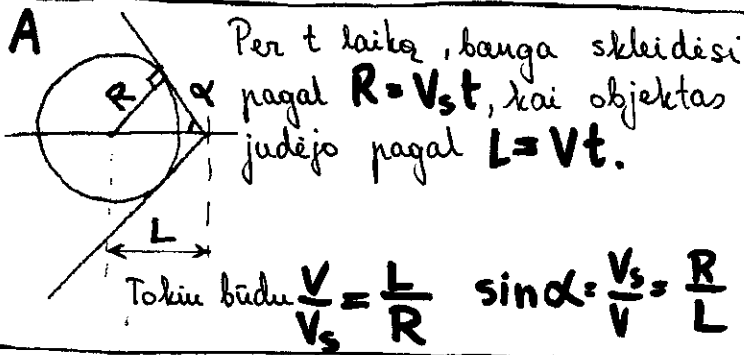 A
Per t laiką, banga skleidėsi
pagal R = Vₛt, kai objektas
judėjo pagal L = Vt.
R
α
L
Tokiu būdu V/Vₛ = L/R sin α = Vₛ/V = R/L